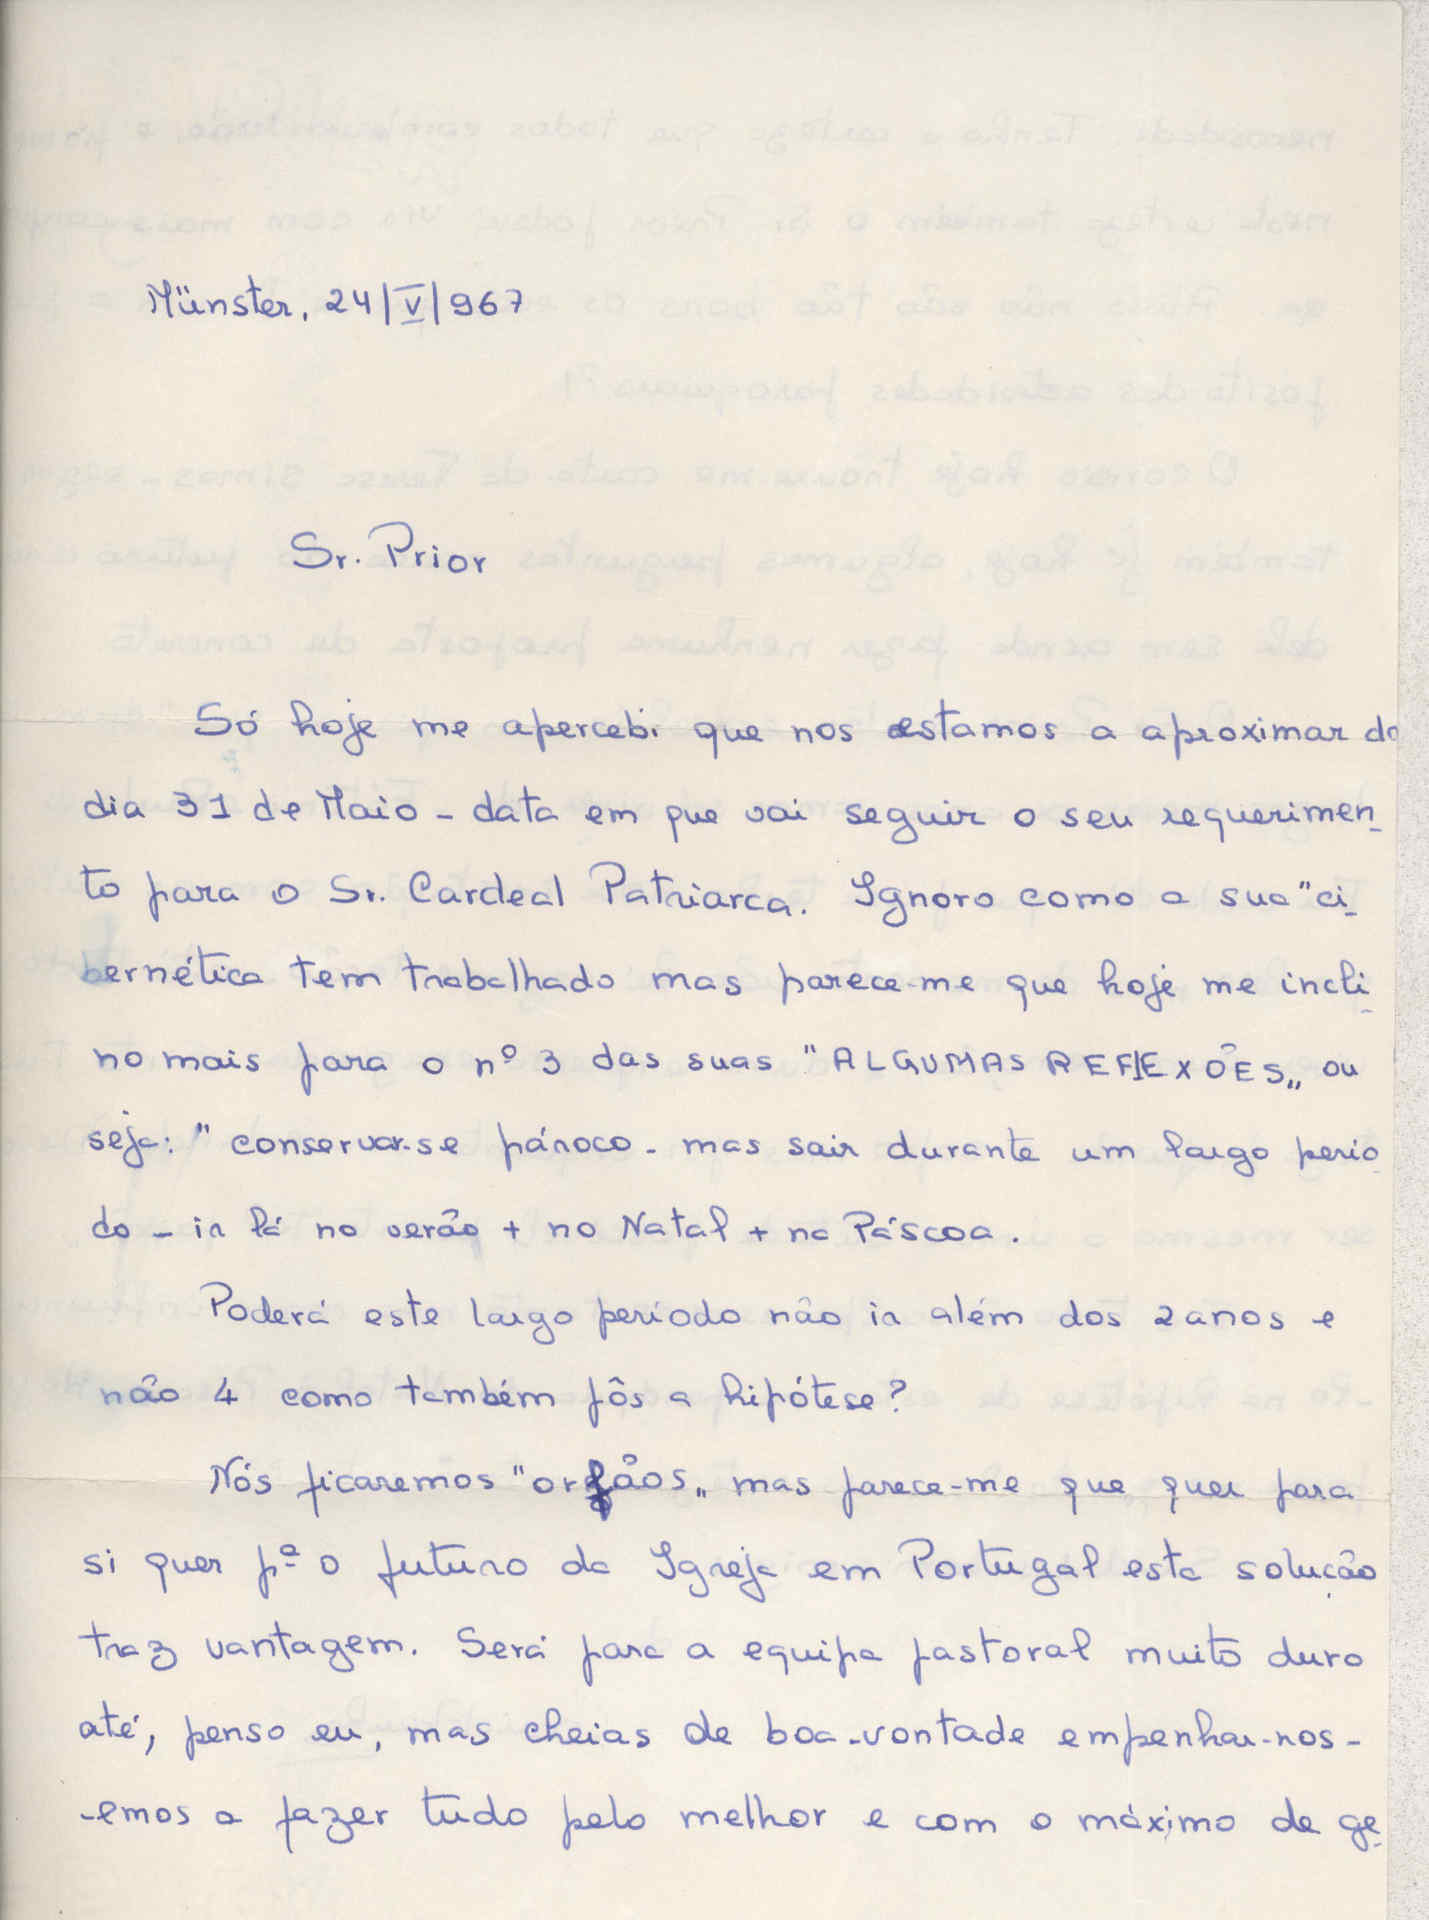 Münster, 24/V/967
Sr. Prior
Só hoje me apercebi que nos estamos a aproximar do
dia 31 de Maio - data em que vai seguir o seu requerimen-
to para o Sr. Cardeal Patriarca. Ignoro como a sua "ci-
bernética tem trabalhado mas parece-me que hoje me incli-
no mais para o nº 3 das suas "ALGUMAS REFLEXÕES" ou
seja: "conservar-se pároco - mas sair durante um largo perío-
do - ir lá no verão + no Natal + na Páscoa.
Poderá este largo período não ir além dos 2 anos e
não 4 como também pôs a hipótese?
Nós ficaremos "orfãos" mas parece-me que quer para
si quer pª o futuro da Igreja em Portugal esta solução
traz vantagem. Será para a equipa pastoral muito duro
até, penso eu, mas cheias de boa-vontade empenhar-nos-
-emos a fazer tudo pelo melhor e com o máximo de ge-